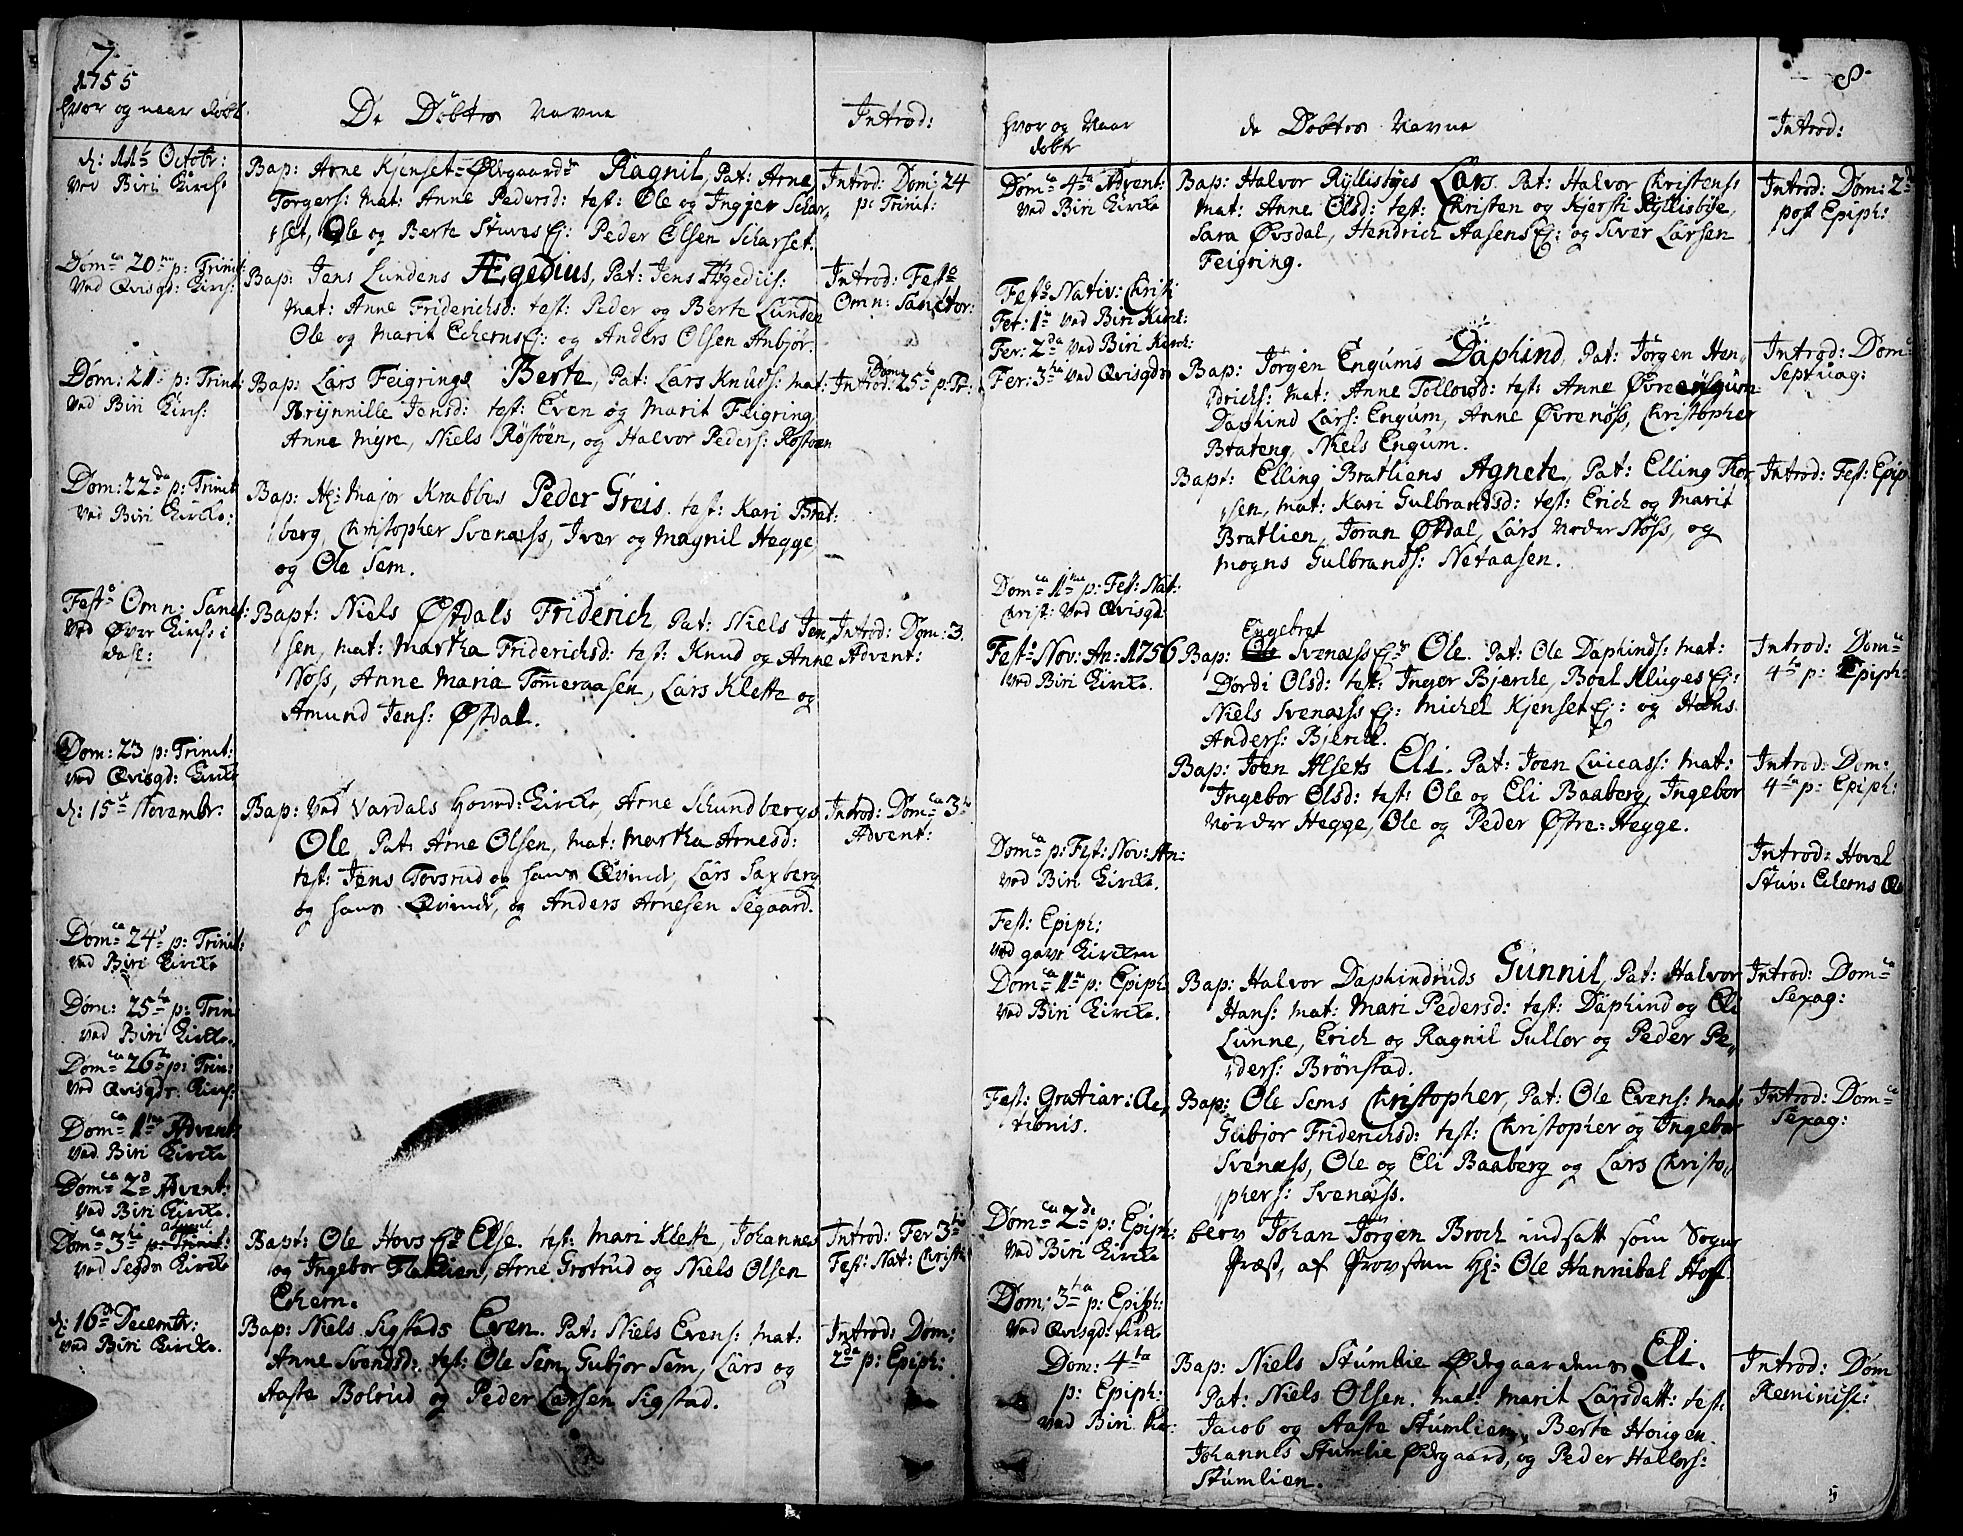 7.
1755
hvor og naar döbt.
De Döbtes Navne
Introd:
d: 11te Octobr:
ved Biri Kirch:
Bap: Arne Kjenset-Ødegaards Ragnil, Pat: Arne
Torgers: Mat: Anne Pedersd: test: Ole og Ingjer Schar-
set, Ole og Berte Stuves Ej: Peder Olsen Scharset.
Introd: Dom: 24
p: Trinit:
Domca 20ma p: Trinit:
ved Qvisgd: Kirch:
Bap: Jens Lundens Ægedius, Pat: Jens Ægedius:
mat: Anne Friderichsd: test: Peder og Berte Lunden
Ole og Marit Echerns Ej: og Anders Olsen Anbjør.
Introd: Festo
Omn: Sanctor:
Dom: 21 p: Trinit:
ved Biri Kirch:
Bap: Lars Feigrings Berte, Pat: Lars Knuds: mat:
Brynnille Jensd: test: Even og Marit Feigring
Anne Myre, Niels Røstøen, og Halvor Peders: Røstøen
Introd: Dom: 25 p: Tr:
Dom: 22da p: Trinit
ved Biri Kircke:
Bap: Hr: Major Krabbes Peder Greis. test: Kari Brat-
berg, Christopher Svenæss, Iver og Magnil Hegge
og Ole Sem.
Festo Omn: Sanct:
ved Øver Kirch: i
Bapt: Niels Østdals Friderich, Pat: Niels Jen-
sen, mat: Martha Friderichsd: test: Knud og Anne
Noss, Anne Maria Tømeraasen, Lars Klette og
Amund Jens: Østdal.
Introd: Dom: 3.
Advent:
Dom: 23 p: Trinit:
ved Qvisgd: Kirke
d: 15de Novembr:
Bap: ved Vardals Hoved: Kirke, Arne Schundbergs
Ole, Pat: Arne Olsen, mat: Martha Arnesd:
test: Jens Tovsrud og hans Qvinde, Lars Saxberg
og hans Qvinde, og Anders Arnesen Segaard.
Introd: Domca 3tia
Advent:
Domca 24 p: Trinit:
ved Biri Kircke
Dom: 25ta p: Trin:
ved Biri Kircke.
Domca 26ta p: Trin:
ved Qvisgdr: Kirch:
Domca 1ma Advent:
ved Biri Kircke
Domca 2da Advent:
ved Biri Kircke.
Domca 3tia Advent
ved Segdr Kircke
Bapt: Ole Hovs Ejr Else. test: Mari Klette, Johannes
og Ingebor Flaklien, Arne Grøtrud og Niels Olsen
Echern.
Introd: Fer 3tia
Fest: Nat: Christi
d: 16de Decembr:
ved Biri Kircke.
Bap: Niels Sigstads Even. Pat: Niels Evens: mat:
Anne Svendsd: test: Ole Sem, Gubjor Sem, Lars og
Aaste Bolrud og Peder Larsen Sigstad.
Introd: Dom:
2da p: Epiph:
8.
hvor og Naar
döbte
de Döbtes Navne
Introd:
Domca 4ta Advent:
ved Biri Kirke
Bap: Halvor Ryllisbyes Lars. Pat: Halvor Christens:
mat: Anne Olsd: test: Christen og Kjersti Ryllisbye,
Sara Øvsdal, Hendrich Aasens Ej: og Siver Larsen
Feigring.
Introd: Dom: 2da
post Epiph:
Festo Nativ: Christi
Fer: 1ma ved Biri Kirck:
Fer: 2da ved Biri Kirck:
Fer: 3tia ved Qvisgdr
Bap: Jørgen Engums Daphind, Pat: Jørgen Hen-
drichs: mat: Anne Tollovsd: test: Anne Øvreengum
Daphind Lars: Engum, Anne Øvrenøss, Christopher
Brateng, Niels Engum.
Introd: Dom
Septuag:
Bapt: Elling Bratliens Agnete, Pat: Elling Thor-
sen, mat: Kari Gulbrandsd: test: Erich og Marit
Bratlien, Joran Østdal, Lars Nedre Nøss, og
Mogns Gulbrands: Netaasen.
Introd: Fest: Epip
Domca 1ma p: Fest: Nat:
Christ: ved Qvisgd:
Festo Nov: An: 1756
ved Biri Kircke.
Engebret
Bap: Ole Svenæss Ejr Ole. Pat: Ole Daphinds: mat:
Dordi Olsd: test: Inger Bjercke, Boel Kluges Ej:
Niels Svenæss Ej: Michel Kjenset Ej: og Hans
Anders: Bjercke.
Introd: Domca
4ta p: Epiph:
Bap: Joen Alsets Eli. Pat: Joen Luccass: mat:
Ingebor Olsd: test: Ole og Eli Baaberg, Ingebor
Nordre Hegge, Ole og Peder Østre-Hegge.
Introd: Dom:
4ta p: Epiph:
Domca p: Fest: Nov: An:
ved Biri Kircke.
Introd: Hovel
Stuv: Echerns
Fest: Epiph:
ved gave Kircken
Domca 1ma p: Epiph:
ved Biri Kircke.
Bap: Halvor Daphindruds Gunnil, Pat: Halvor
Hans: mat: Mari Pedersd: test: Daphind og Eli
Lunne, Erich og Ragnil Gullor og Peder Pe-
ders: Brønstad.
Introd: Domca
Sexag:
Fest: Gratiar: Ac-
tionis.
Bap: Ole Sems Christopher, Pat: Ole Evens: mat:
Gubjor Friderichsd: test: Christopher og Ingebor
Svenæss, Ole og Eli Baaberg og Lars Christo-
phers: Svenæss.
Introd: Domca
Sexag:
Domca 2da p: Epiph:
ved Biri Kircke
blev Johan Jørgen Broch indsatt som Sogne
Præst, af Provsten Hr: Ole Hannibal Hoff.
Dom: 3tia p: Epiph:
ved Qvisgd: Kircke
Dom: 4ta
p: Epiph:
ved Biri Kir:
Bap: Niels Stumlie Ødegaardens Eli.
Pat: Niels Olsen. mat: Marit Larsdatt: test:
Jacob og Aaste Stumlien, Berte Hougen
Johannes Stumlie Ødegaard, og Peder Hallors:
Stumlien.
Introd: Dom
Reminisc:
5